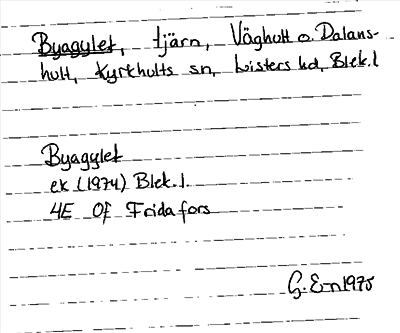 Byagylet, tjärn, Våghult o. Dalans-
hult, Kyrkhults sn, Listers hd, Blek. l
Byagylet
ek (1974) Blek. l.
4E 0f Fridafors
G. En 1975